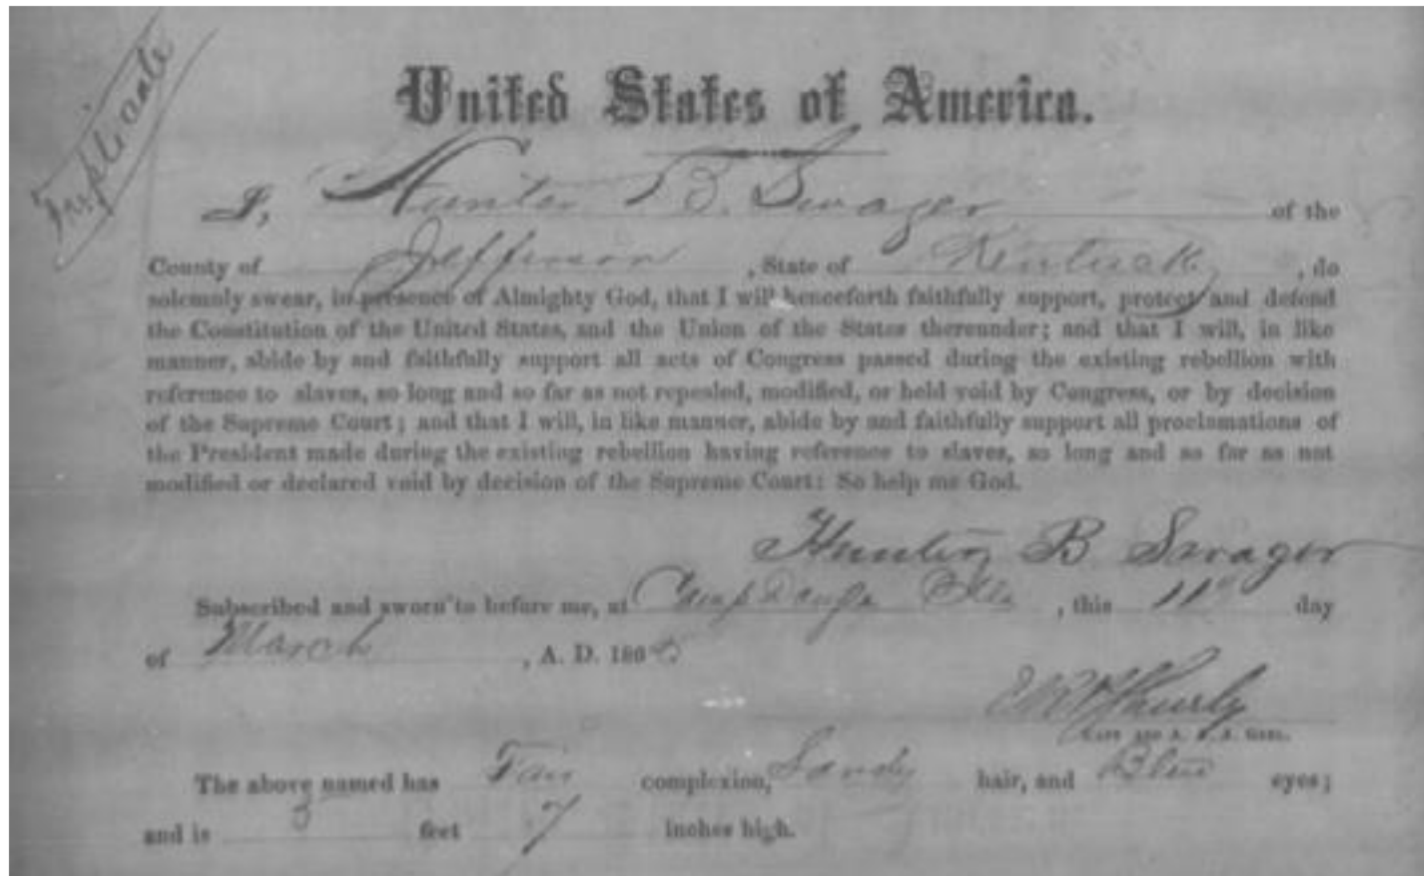 Triplicate
United States of America.
I, Hunter B. Swager of the
County of Jefferson, State of Kentucky, do
solemnly swear, in presence of Almighty God, that I will henceforth faithfully support, protect and defend
the Constitution of the United States, and the Union of the States thereunder; and that I will, in like
manner, abide by and faithfully support all acts of Congress passed during the existing rebellion with
reference to slaves, so long and so far as not repealed, modified, or held void by Congress, or by decision
of the Supreme Court; and that I will, in like manner, abide by and faithfully support all proclamations of
the President made during the existing rebellion having reference to slaves, so long and so far as not
modified or declared void by decision of the Supreme Court: So help me God.
Hunter B Swager
Subscribed and sworn to before me, at Camp, this 11th day
of March, A. D. 1865
CAPT AND A. A. A. GENL.
The above named has Fair complexion, Sandy hair, and Blue eyes;
and is 5 feet 7 inches high.